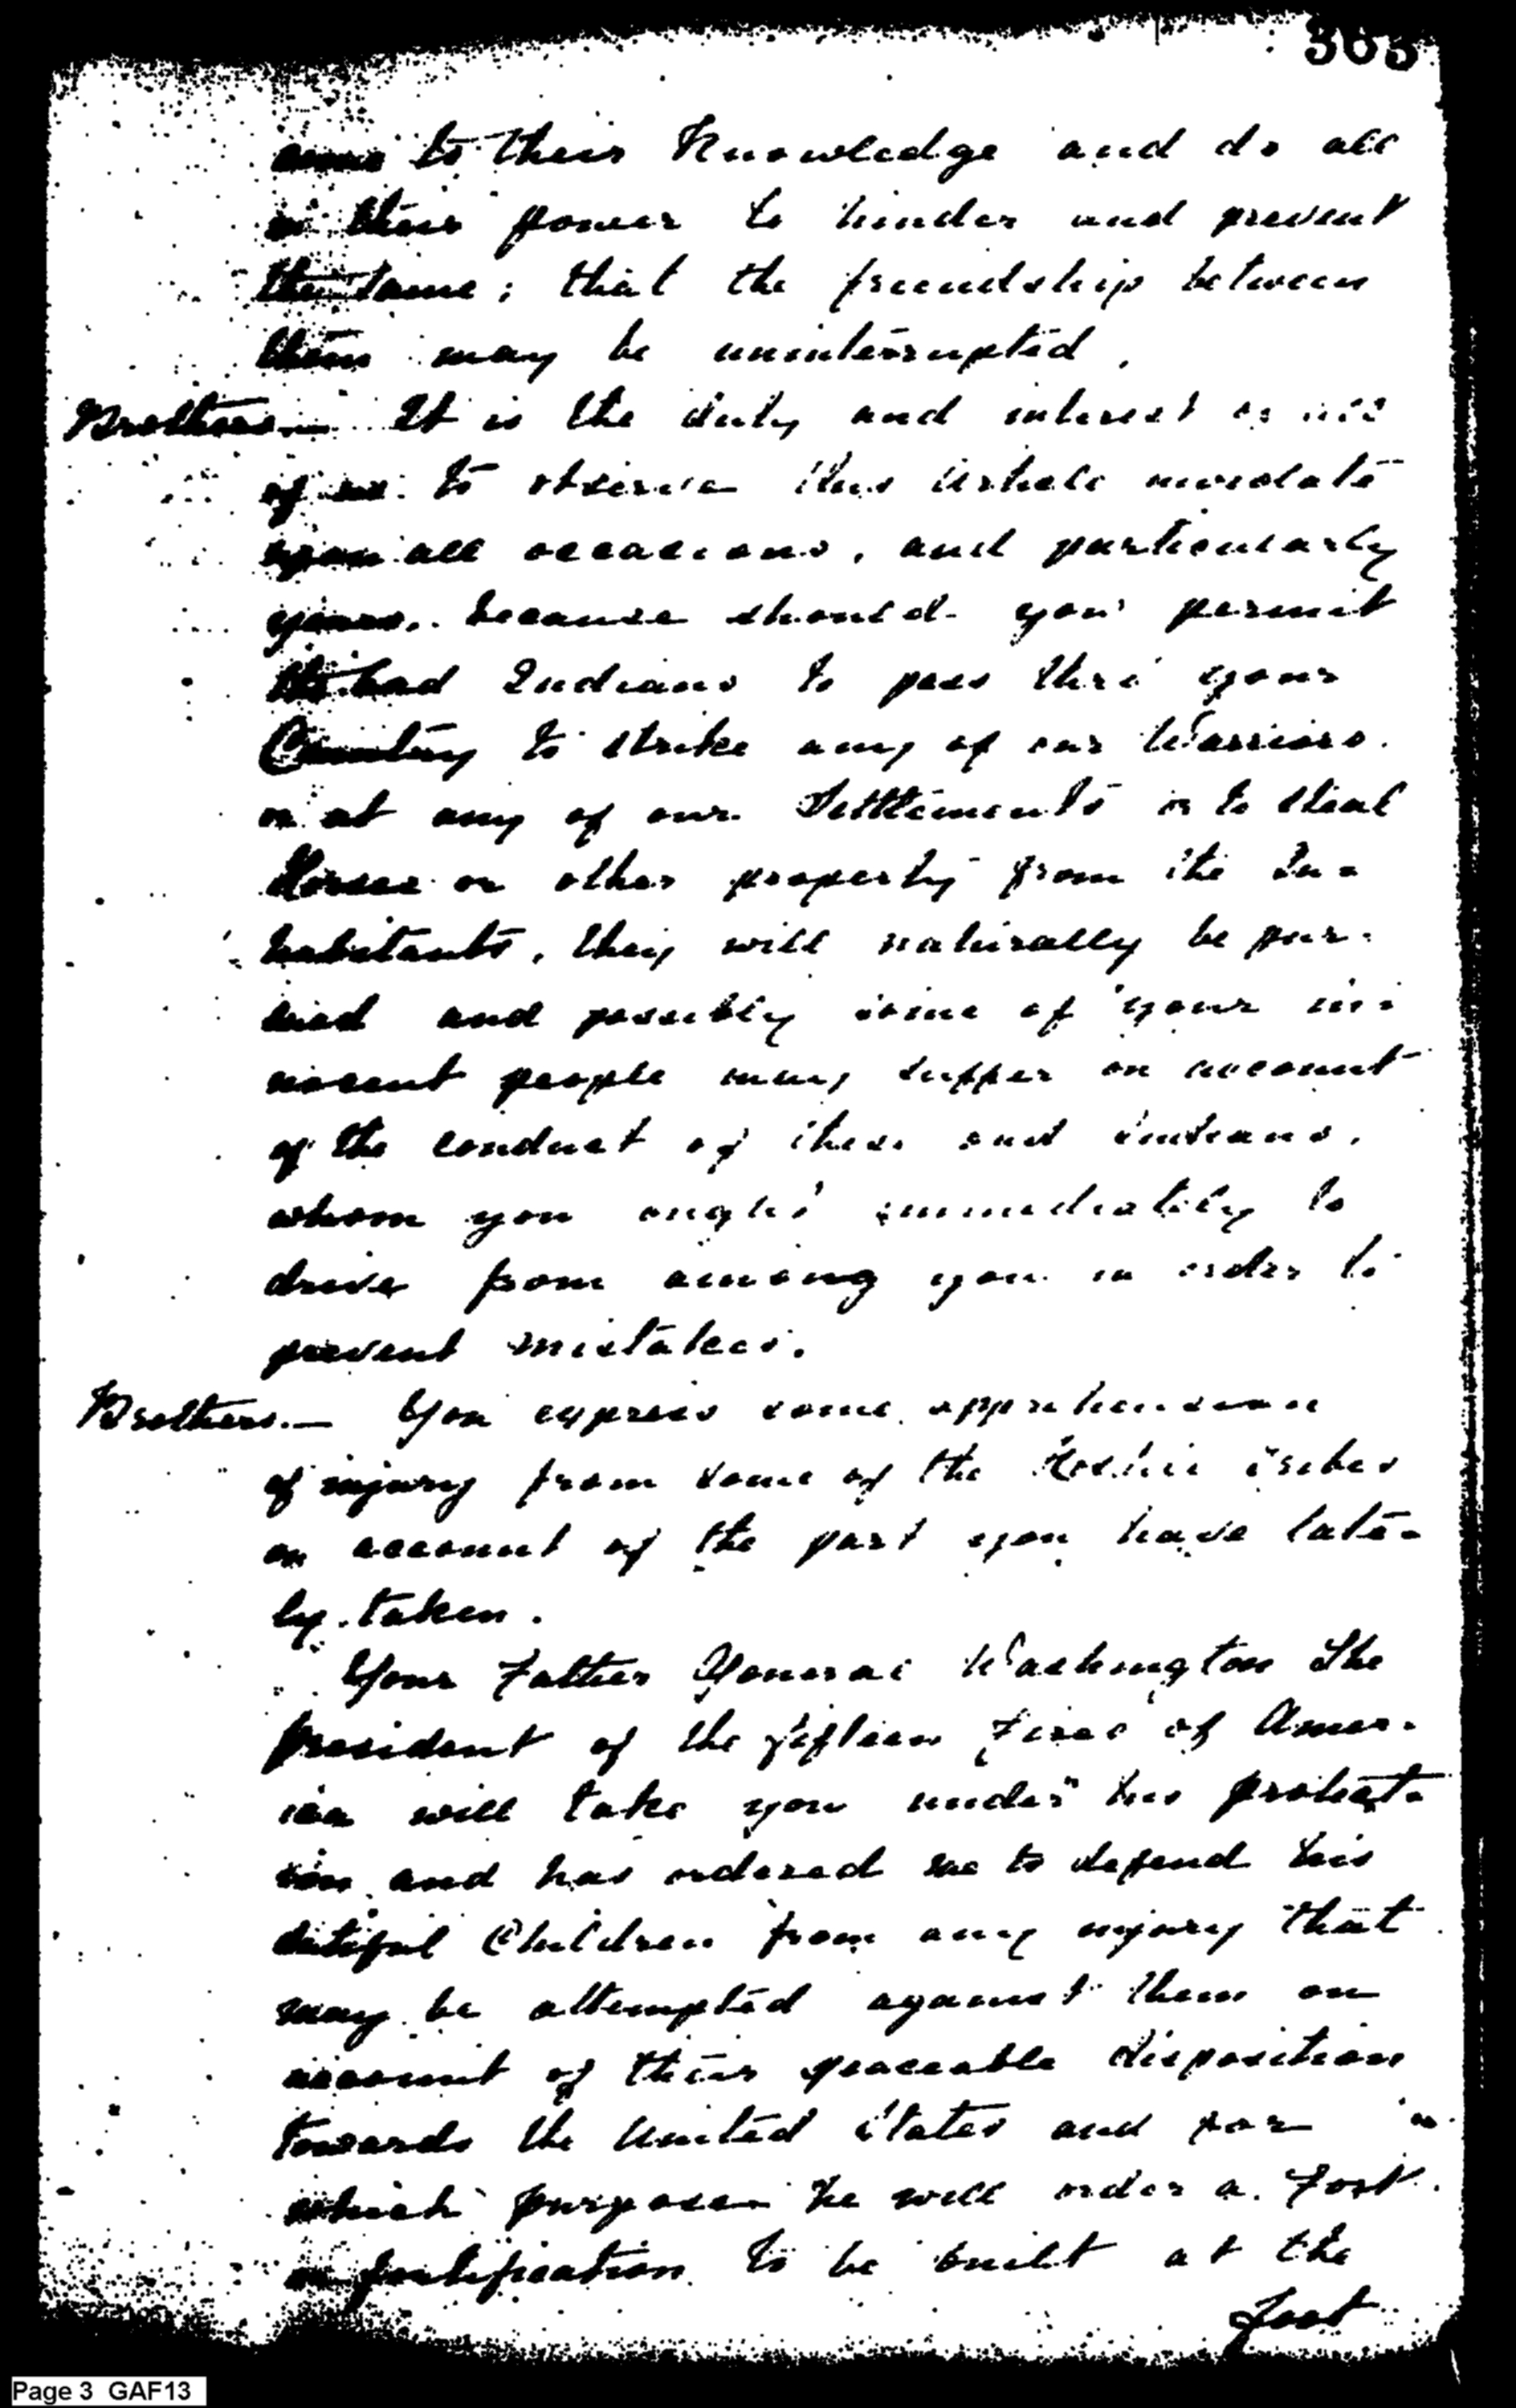 363
come to their Knowledge and do all
in their power to hinder and prevent
the same; that the friendship between
them may be uninterrupted.
Brothers.— It is the duty and interest of all
of us to observe this Article inviolate
upon all occasions, and particularly
yours, because should you permit
the bad Indians to pass thro' your
Country to strike any of our Warriors
or at any of our Settlements or to steal
Horses or other property from the In-
habitants, they will naturally be pur-
sued and possibly some of your in-
nocent people may suffer on account
of the conduct of these bad Indians,
whom you ought immediately to
drive from among you in order to
prevent mistakes.
Brothers.— You express some apprehension
of injury from some of the Hostile tribes
on account of the part you have late-
ly taken.
Your Father General Washington The
President of the fifteen Fires of Amer-
ica will take you under his protect-
ion and has ordered me to defend his
dutiful Children from any injury that
may be attempted against them on
account of their peaceable disposition
towards the United States and for
which purpose he will order a Fort
or fortification to be built at the
foot
Page 3 GAF13